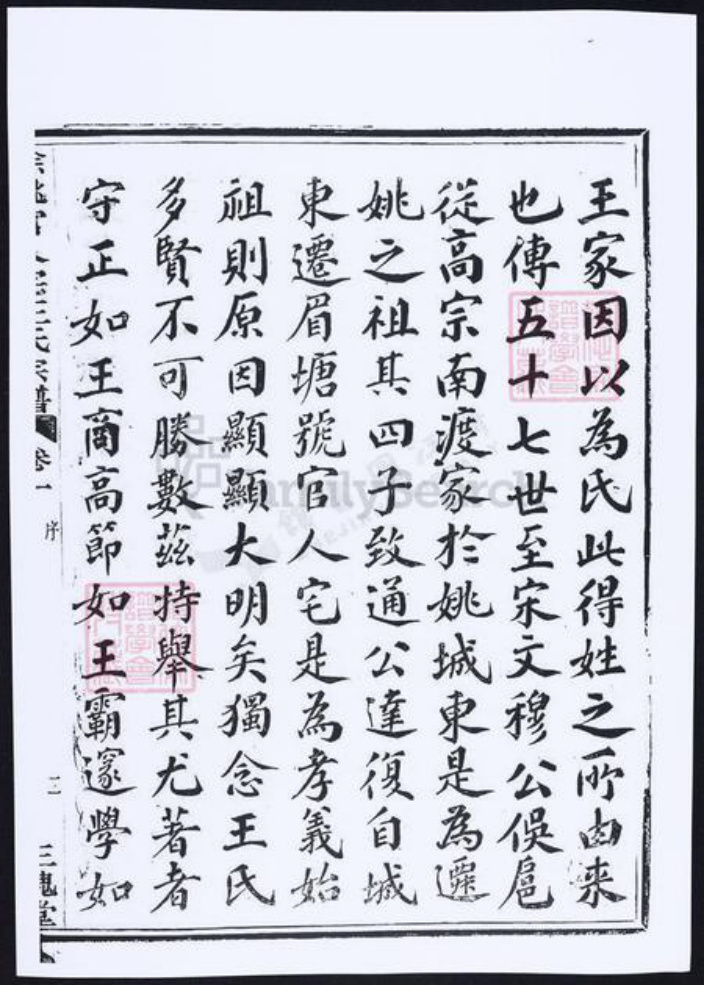 王家因以為氏此得姓之所由来
也傳五十七世至宋文穆公俁扈
從高宗南渡家於姚城東是為遷
姚之祖其四子致通公達復自城
東遷眉塘號官人宅是為孝義始
祖則原因顯顯大明矣獨念王氏
多賢不可勝數茲特舉其尤著者
守正如王商高節如王霸邃學如
王氏宗譜
卷一
序
二
三槐堂
FamilySearch